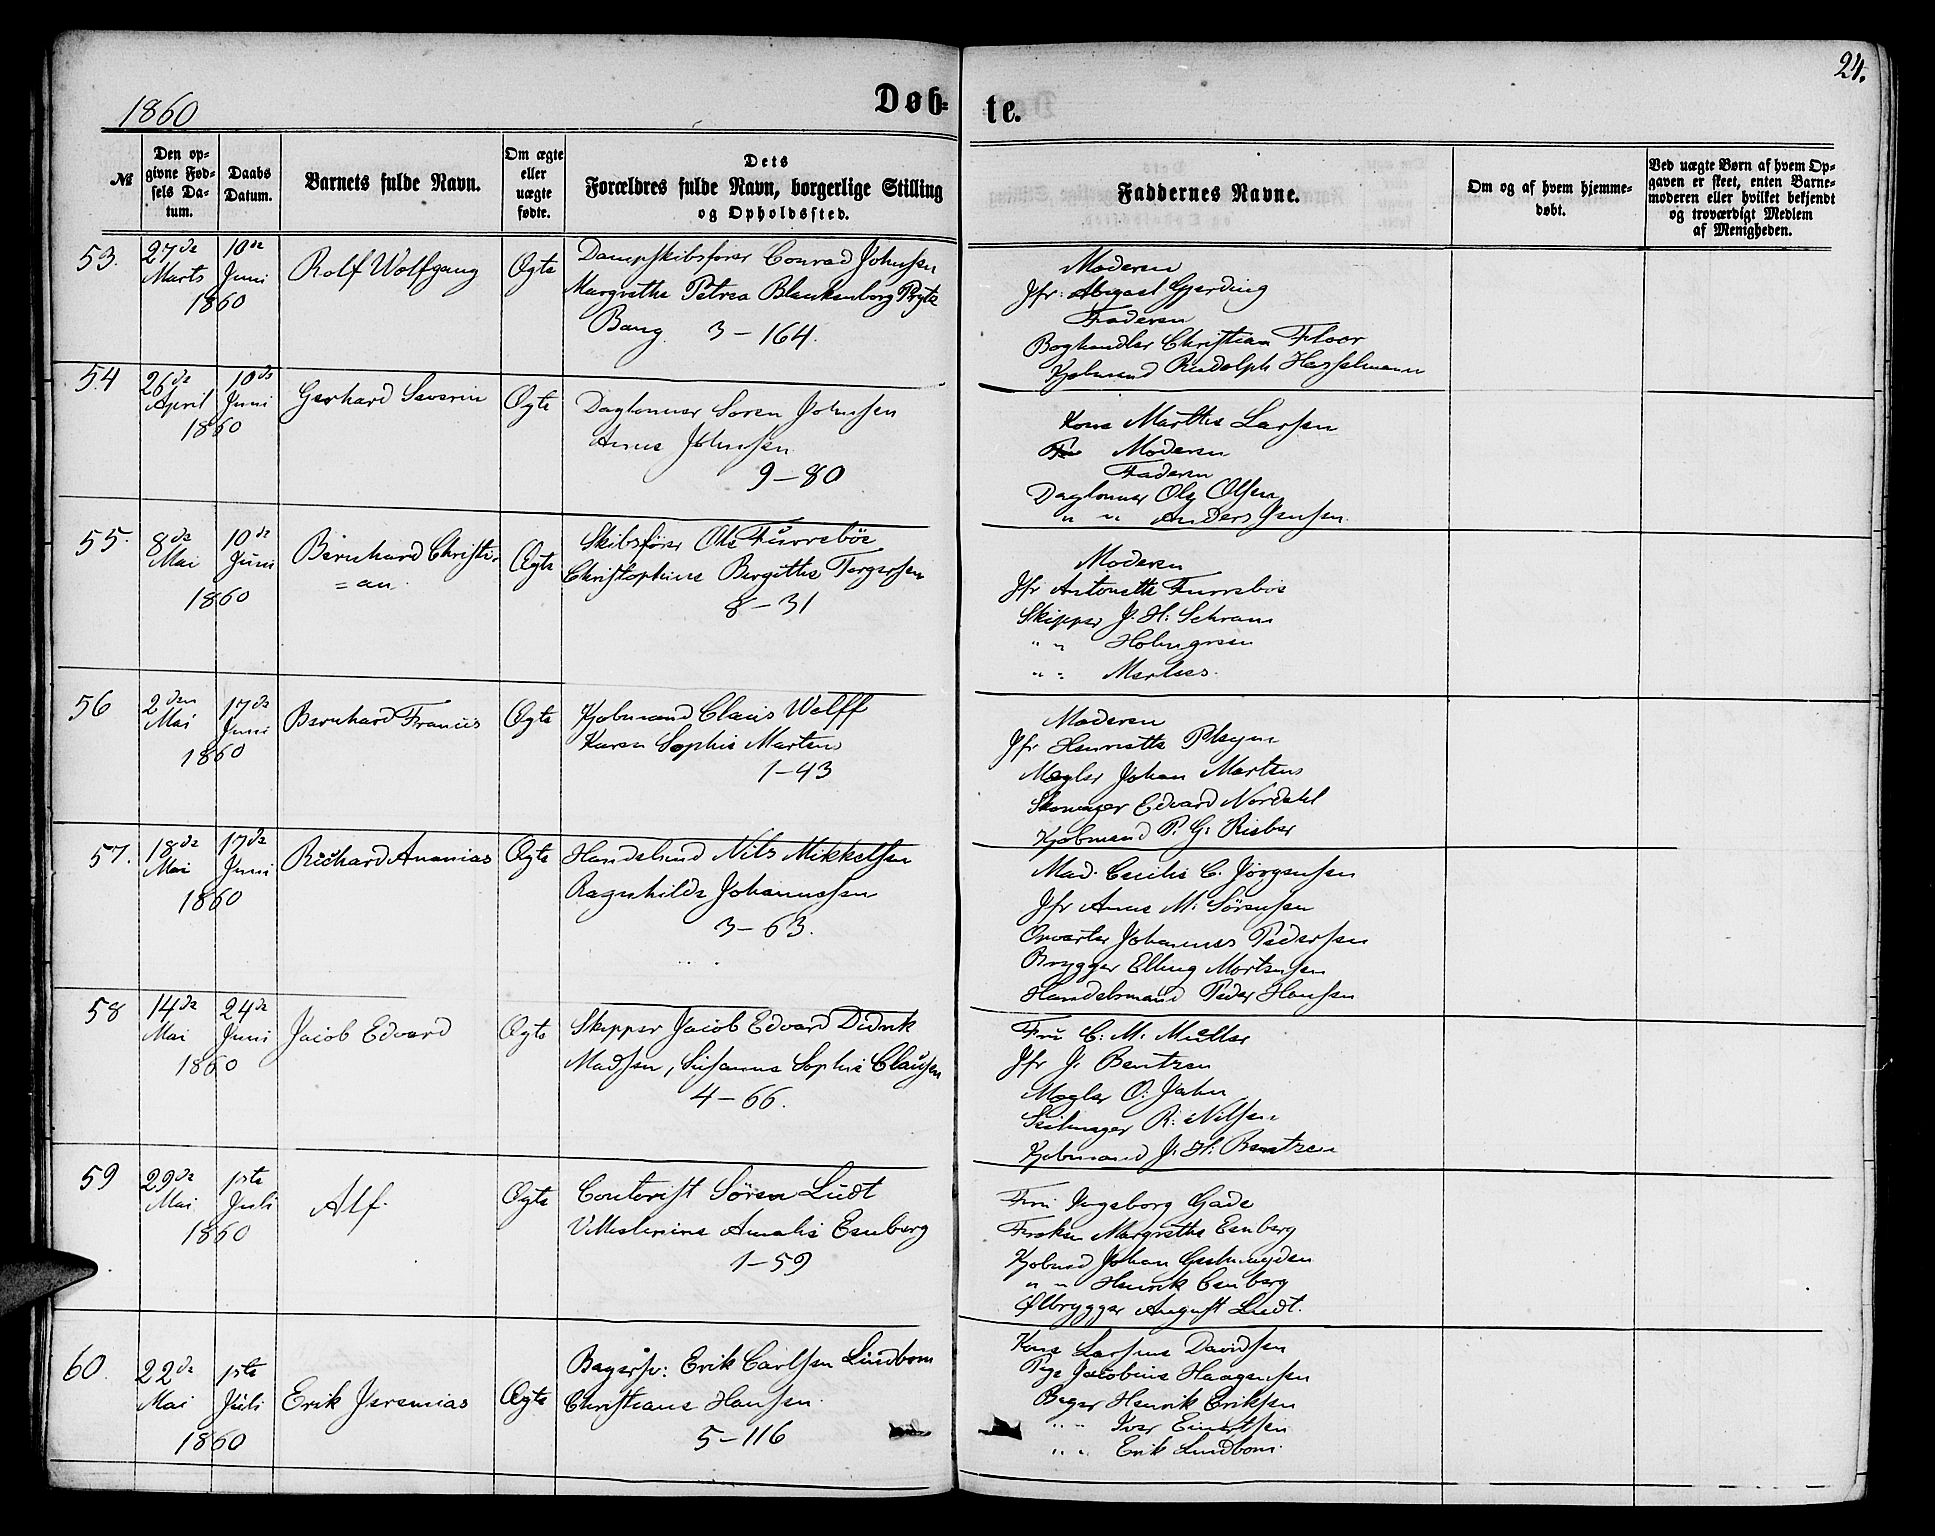 24.
1860
Døb-
te.
№
Den op-
givne Fød-
sels Da-
tum.
Daabs
Datum.
Barnets fulde Navn.
Om ægte
eller
uægte
fødte.
Dets
Forældres fulde Navn, borgerlige Stilling
og Opholdssted.
Faddernes Navne.
Om og af hvem hjemme-
døbt.
Ved uægte Børn af hvem Op-
gaven er skeet, enten Barne-
moderen eller hvilket bekjendt
og troværdigt Medlem
af Menigheden.
53.
27de
Marts
10de
Juni
1860
Rolf Wolfgang
Ægte
Dampskibsfører Conrad Johnsen
Margrethe Petrea Blankenborg Prytz
Bang 3-164.
Moderen
Jfr: Abigael Gjerding
Faderen
Boghandler Christian Floor
Kjøbmand Rudolph Hasselmann
54
26de
April
10de
Juni
1860
Gerhard Severin
Ægte
Daglønner Søren Johnsen
Anne Johnsen
9-80
Kone Marthe Larsen
Moderen
Faderen
Daglønner Ole Olsen
" " Anders Jensen
55.
8de
Mai
10de
Juni
1860
Bernhard Christi-
=an.
Ægte
Skibsfører Ole Furrebøe
Christophine Birgitte Tergersen
8-31
Moderen
Jfr Antonette Furrebøe
Skipper J. H: Schram
" " Holmgreen
" "
56
2den
Mai
17de
Juni
1860
Bernhard Franciis
Ægte
Kjøbmand Claus Wolff
Karen Sophie Martens
1-43
Moderen
Jfr Henriette Pleym
Mægler Johan Martens
Skomager Edvard Nordahl
Kjøbmand P. G. Rieber
57.
18de
Mai
17de
Juni
1860
Richard Ananias
Ægte
Handelsmd Nils Mikkelsen
Ragnhilde Johannessen
3-63.
Mad. Cecilie C. Jörgensen
Jfr Anne M: Sörensen
Opvarter Johannes Pedersen
Brygger Elling Mortensen
Handelsmand Peder Hansen
58
14de
Mai
24de
Juni
1860
Jacob Edvard
Ægte
Skipper Jacob Edvard Didrik
Madsen, Susanne Sophie Clausen
4-66.
Fru C. M. Müller
Jfr J. Bentzen
Mægler O. Jahn
Seilmager R: Nilsen
Kjøbmand J. H: Bentzen
59
29de
Mai
1ste
Juli
1860
Alf.
Ægte
Contorist Sören Ludt
Villielmine Amalie Isenberg
1-59
Fru Ingeborg Gade
Frøken Margrethe Isenberg
Kjøbmd Johan Geelmuyden
" " Henrik Isenberg
Ølbrygger August Ludt.
60.
22de
Mai
1ste
Juli
1860
Erik Jeremias
Ægte
Bagersv: Erik Carlsen Lindbom
Christiane Hansen
5-116
Kone Larsine Davidsen
Pige Jacobine Haagensen
Bager Henrik Eriksen
" " Iver Einertsen
" " Erik Lindbom